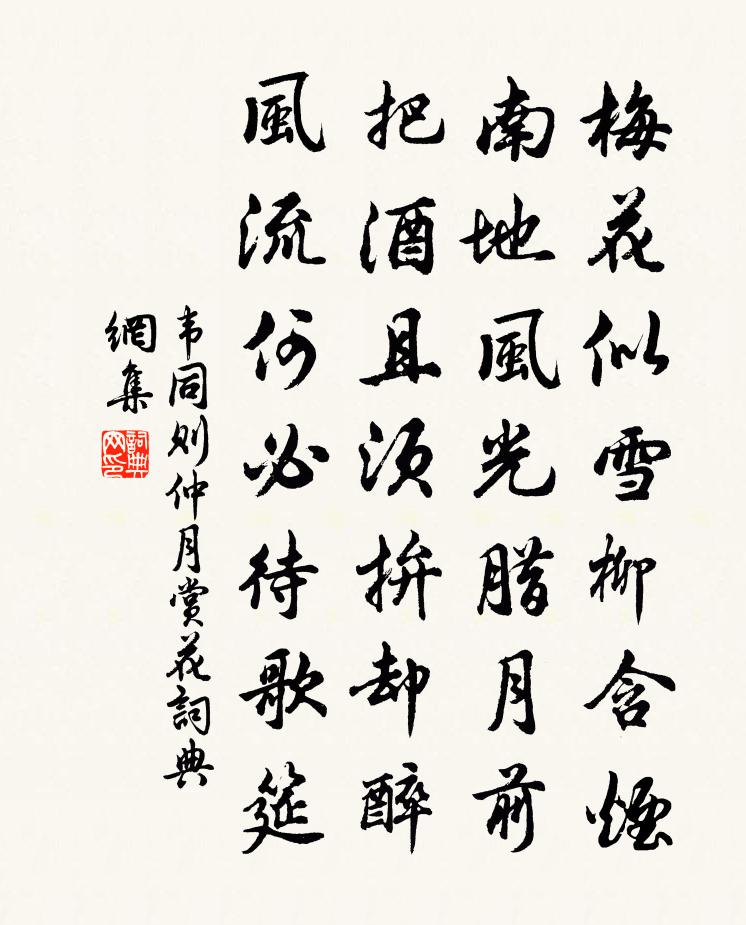 梅花似雪柳含煙
南地風光腊月前
把酒且須拚却醉
風流何必待歌筵
韦同则仲月赏花詞典
網集
詞典
网印